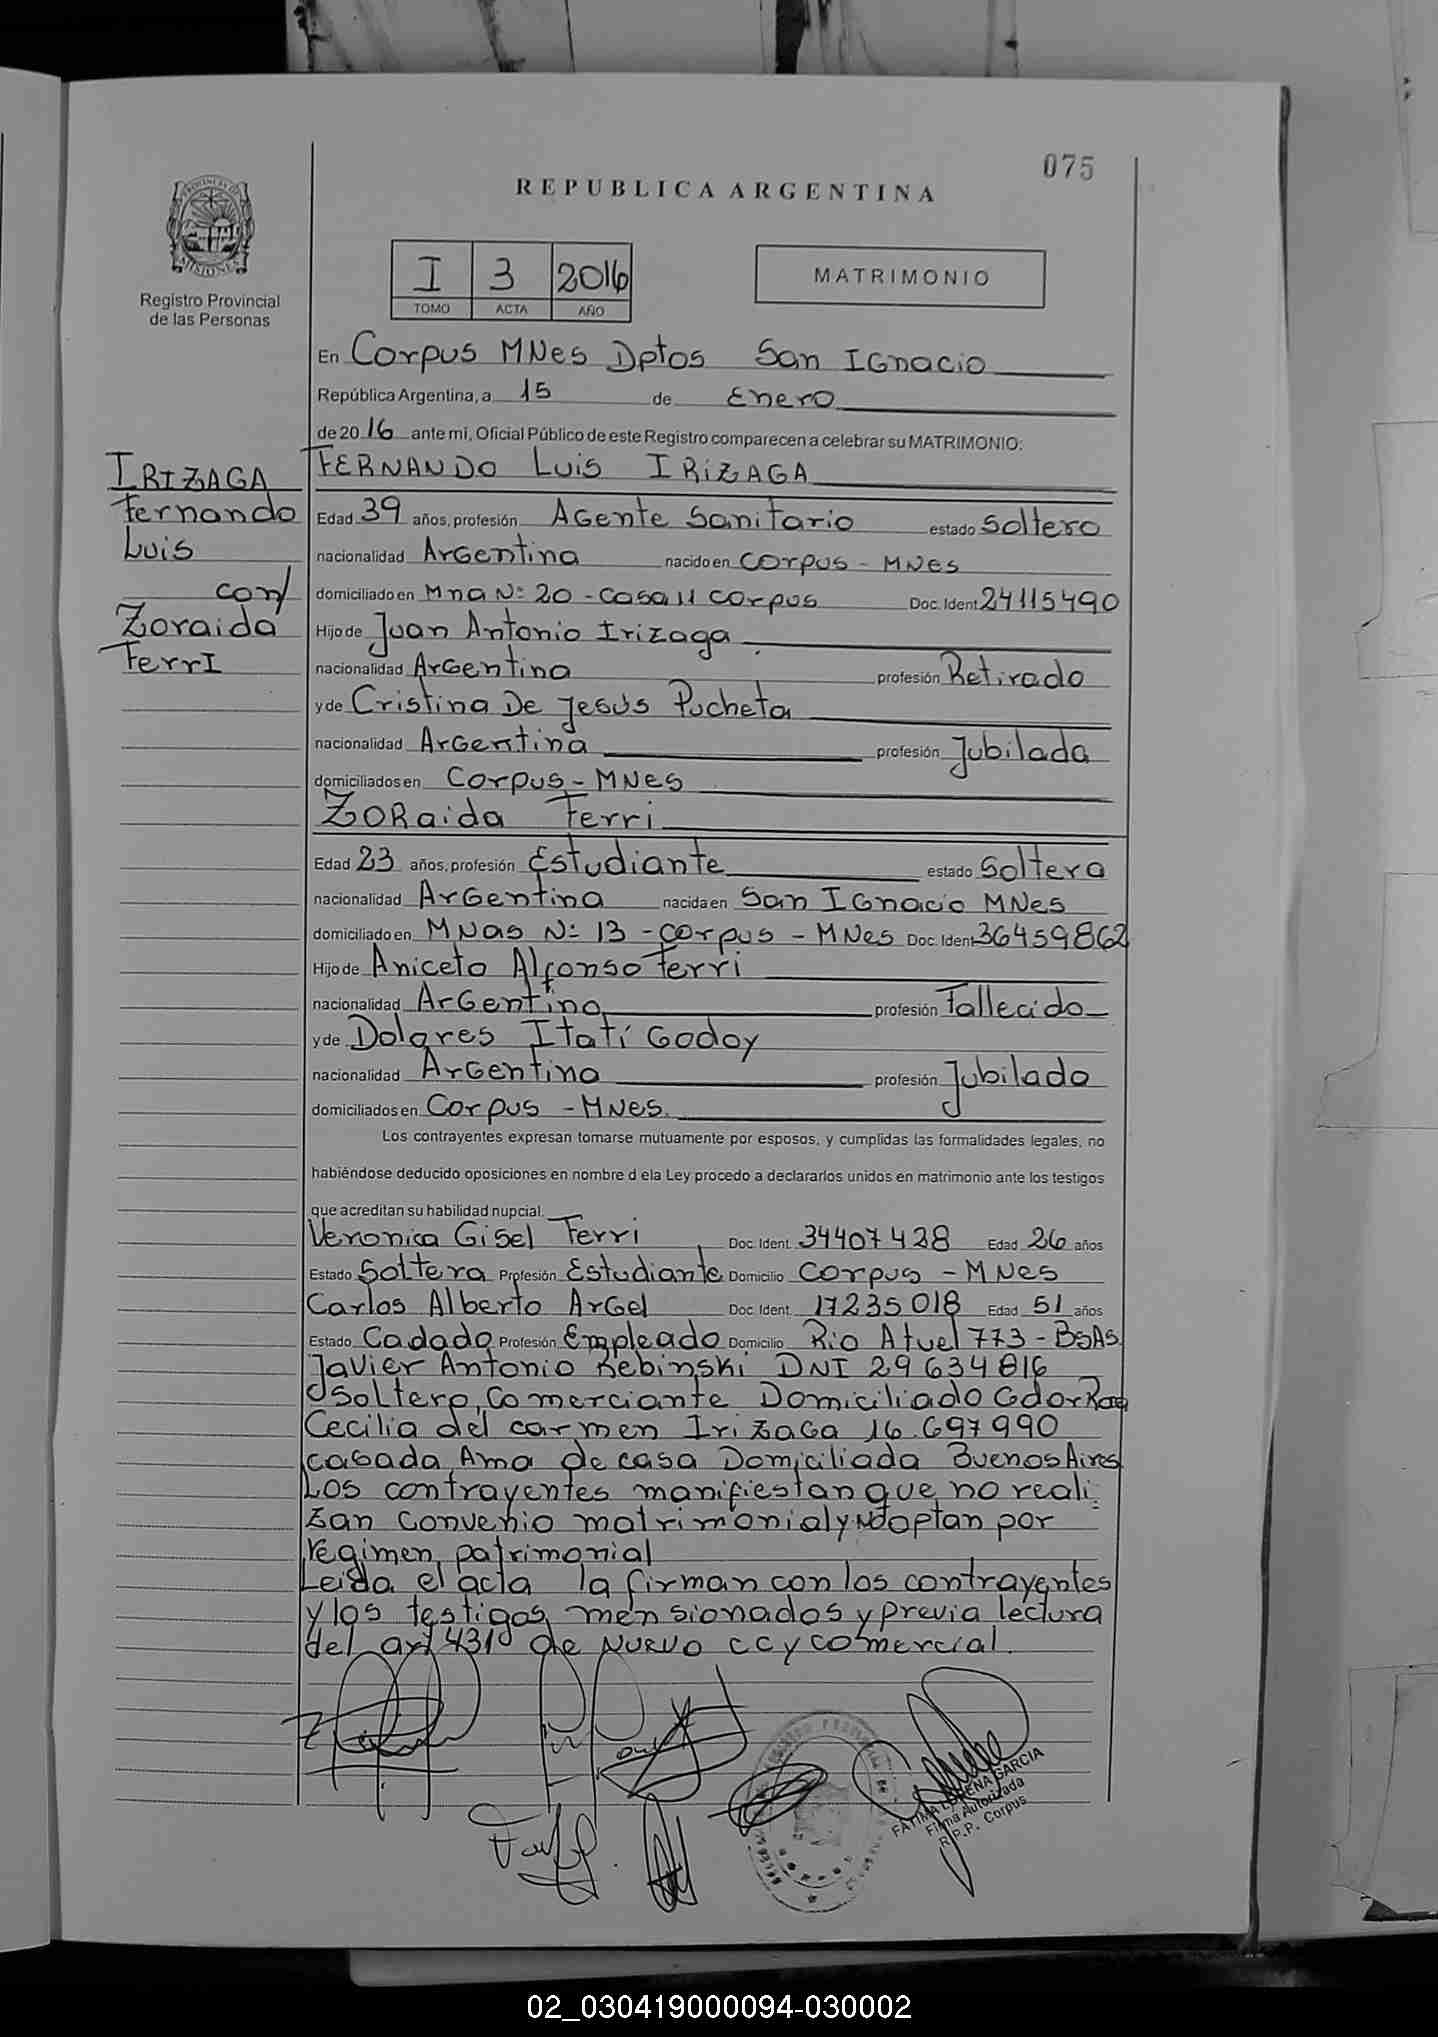 075
REPUBLICA ARGENTINA
PROVINCIA DE
MISIONES
Registro Provincial
de las Personas
I 3 2016
TOMO ACTA AÑO
MATRIMONIO
En Corpus MNes Dptos San IGnacio
República Argentina, a 15 de Enero
de 2016 ante mi, Oficial Público de este Registro comparecen a celebrar su MATRIMONIO:
IRIZAGA
Fernando
Luis
con/
Zoraida
FerrI
FERNANDO Luis IRiZAGA
Edad 39 años, profesión AGente Sanitario estado Soltero
nacionalidad ArGentina nacido en Corpus - MNes
domiciliado en Mna N: 20 - casa 11 corpus Doc. Ident 24115490
Hijo de Juan Antonio Irizaga
nacionalidad ArGentina profesión Retirado
y de Cristina De Jesús Pucheta
nacionalidad ArGentina profesión Jubilada
domiciliados en Corpus - MNes
ZORaida Ferri
Edad 23 años, profesión Estudiante estado Soltera
nacionalidad ArGentina nacida en San IGnacio MNes
domiciliado en MNas N: 13 - corpus - MNes Doc. Ident 36459862
Hijo de Aniceto Alfonso Ferri
nacionalidad ArGentina profesión Fallecido
y de Dolores Itatí Godoy
nacionalidad ArGentina profesión Jubilado
domiciliados en Corpus - MNes.
Los contrayentes expresan tomarse mutuamente por esposos, y cumplidas las formalidades legales, no
habiéndose deducido oposiciones en nombre d ela Ley procedo a declararlos unidos en matrimonio ante los testigos
que acreditan su habilidad nupcial.
Veronica Gisel Ferri Doc. Ident. 34407428 Edad 26 años
Estado Soltera Profesión Estudiante Domicilio Corpus - MNes
Carlos Alberto ArGel Doc. Ident. 17235018 Edad 51 años
Estado Cadado Profesión Empleado Domicilio Rio Atuel 773 - BsAs
Javier Antonio Rebinski DNI 29634816
Soltero, Comerciante Domiciliado Gdor Roca
Cecilia del carmen IriZaGa 16.697990
casada Ama de casa Domiciliada Buenos Aires
Los contrayentes manifiestan que no reali
zan convenio matrimonial y No optan por
regimen patrimonial
Leida el acta la firman con los contrayentes
y los testigos mensionados y previa lectura
del art 431º de Nuevo CC y comercial.
FATIMA LORENA GARCIA
Firma Autorizada
R.P.P. Corpus
02_030419000094-030002